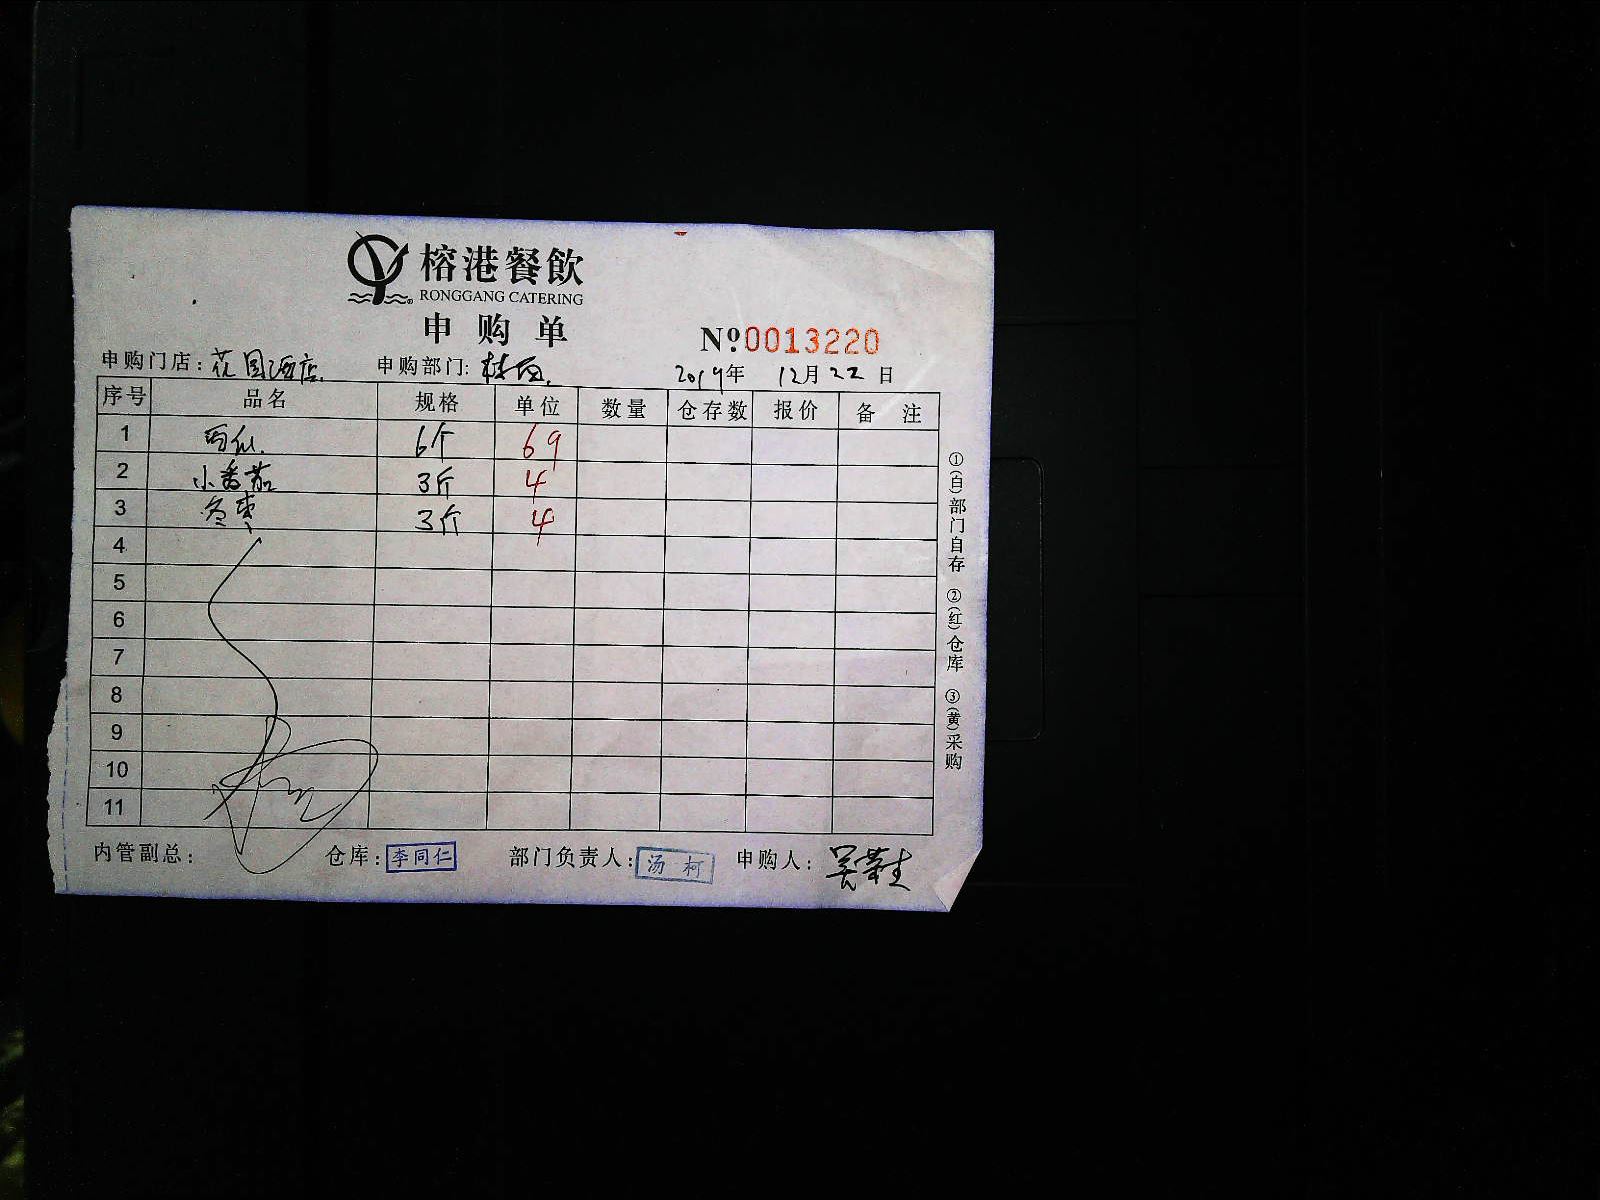 榕港餐飲
RONGGANG CATERING
申购单
№0013220
申购门店:花园酒店 申购部门: 2019年 12月22日
序号 品名 规格 单位 数量 仓存数 报价 备注
1 西瓜 6个 69
2 小番茄 3斤 4
3 冬枣 3斤 4
4
5
6
7
8
9
10
11
内管副总: 仓库:李同仁 部门负责人:汤柯 申购人:
①(自)部门自存 ②(红)仓库 ③(黄)采购